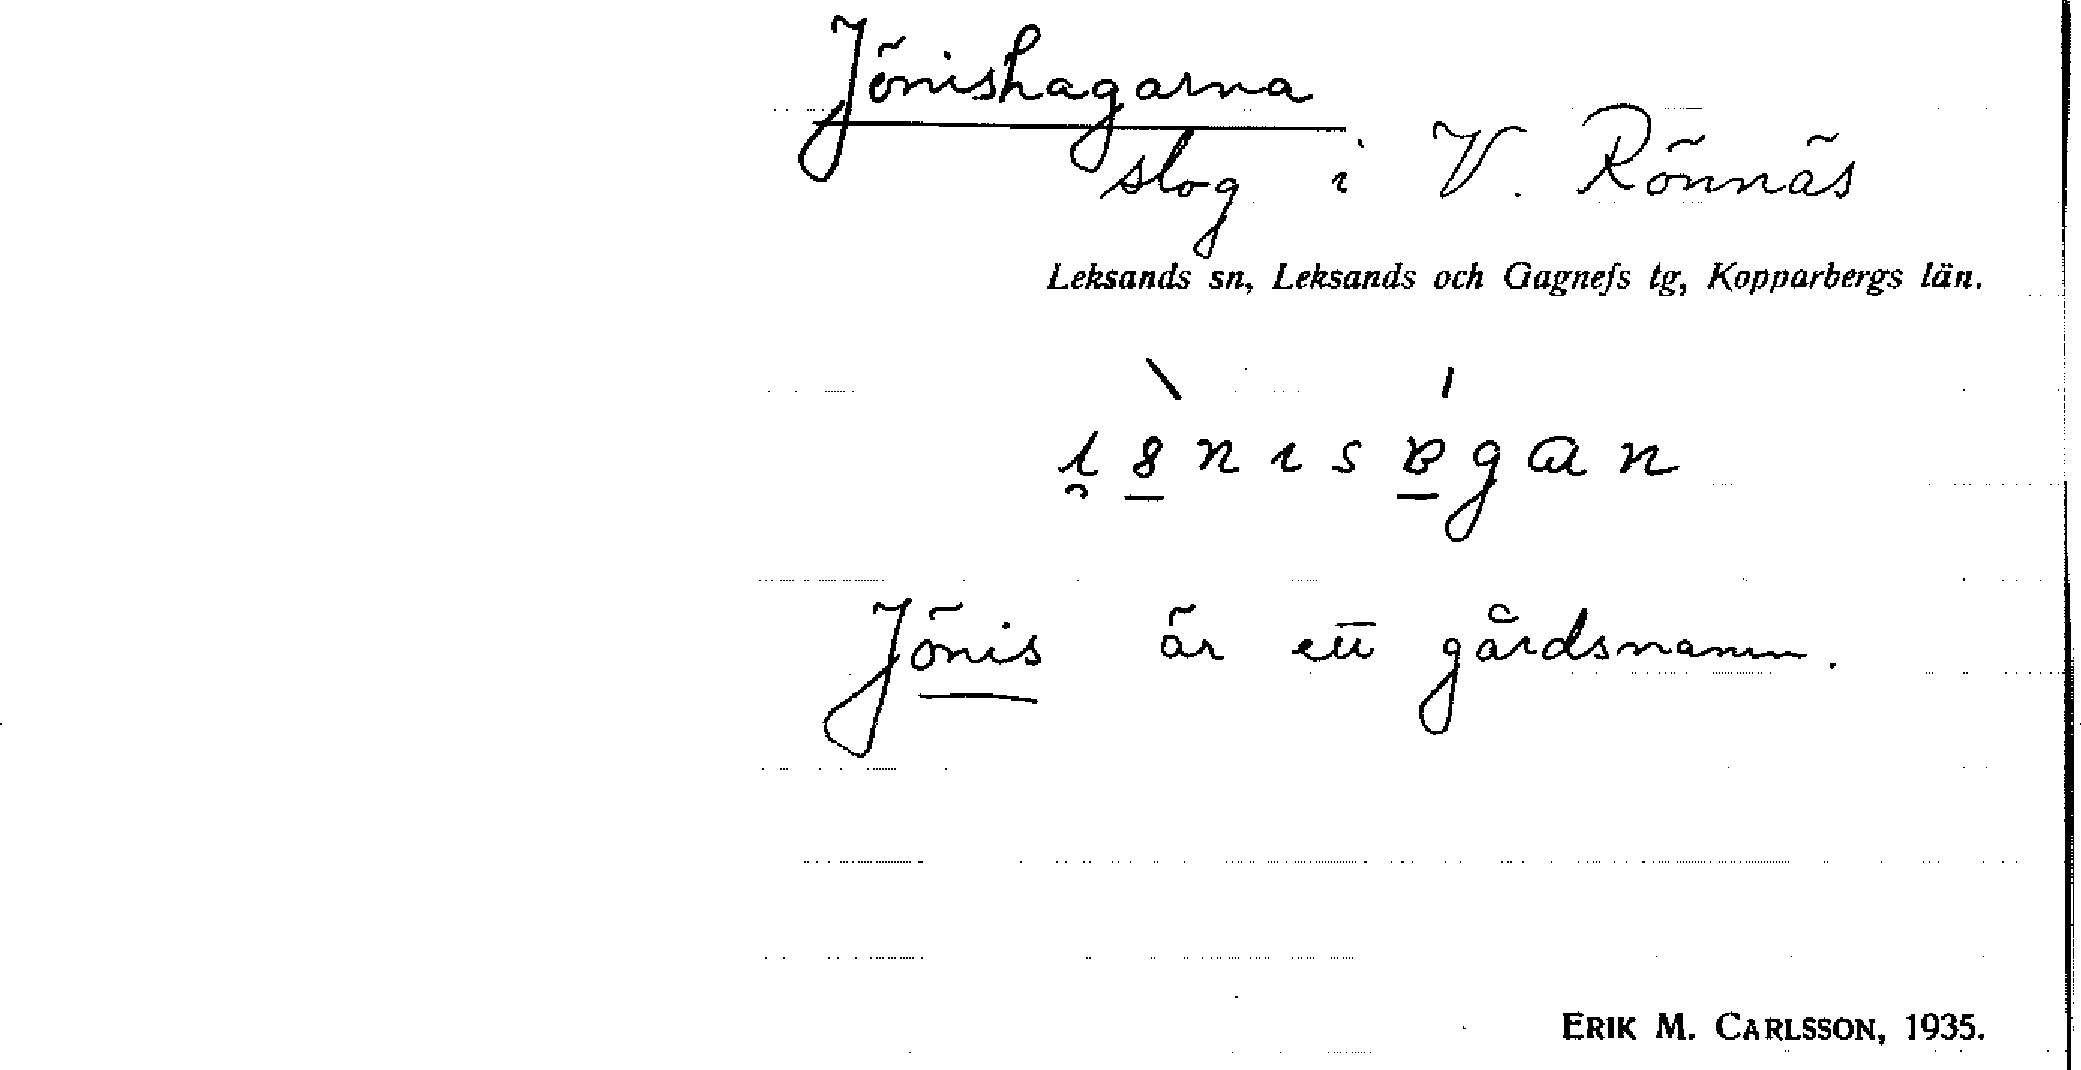 Jönishagarna
slog i V. Rönnäs
Leksands sn, Leksands och Gagnefs tg, Kopparbergs län.
Jönis är ett gårdsnamn.
ERIK M. CARLSSON, 1935.